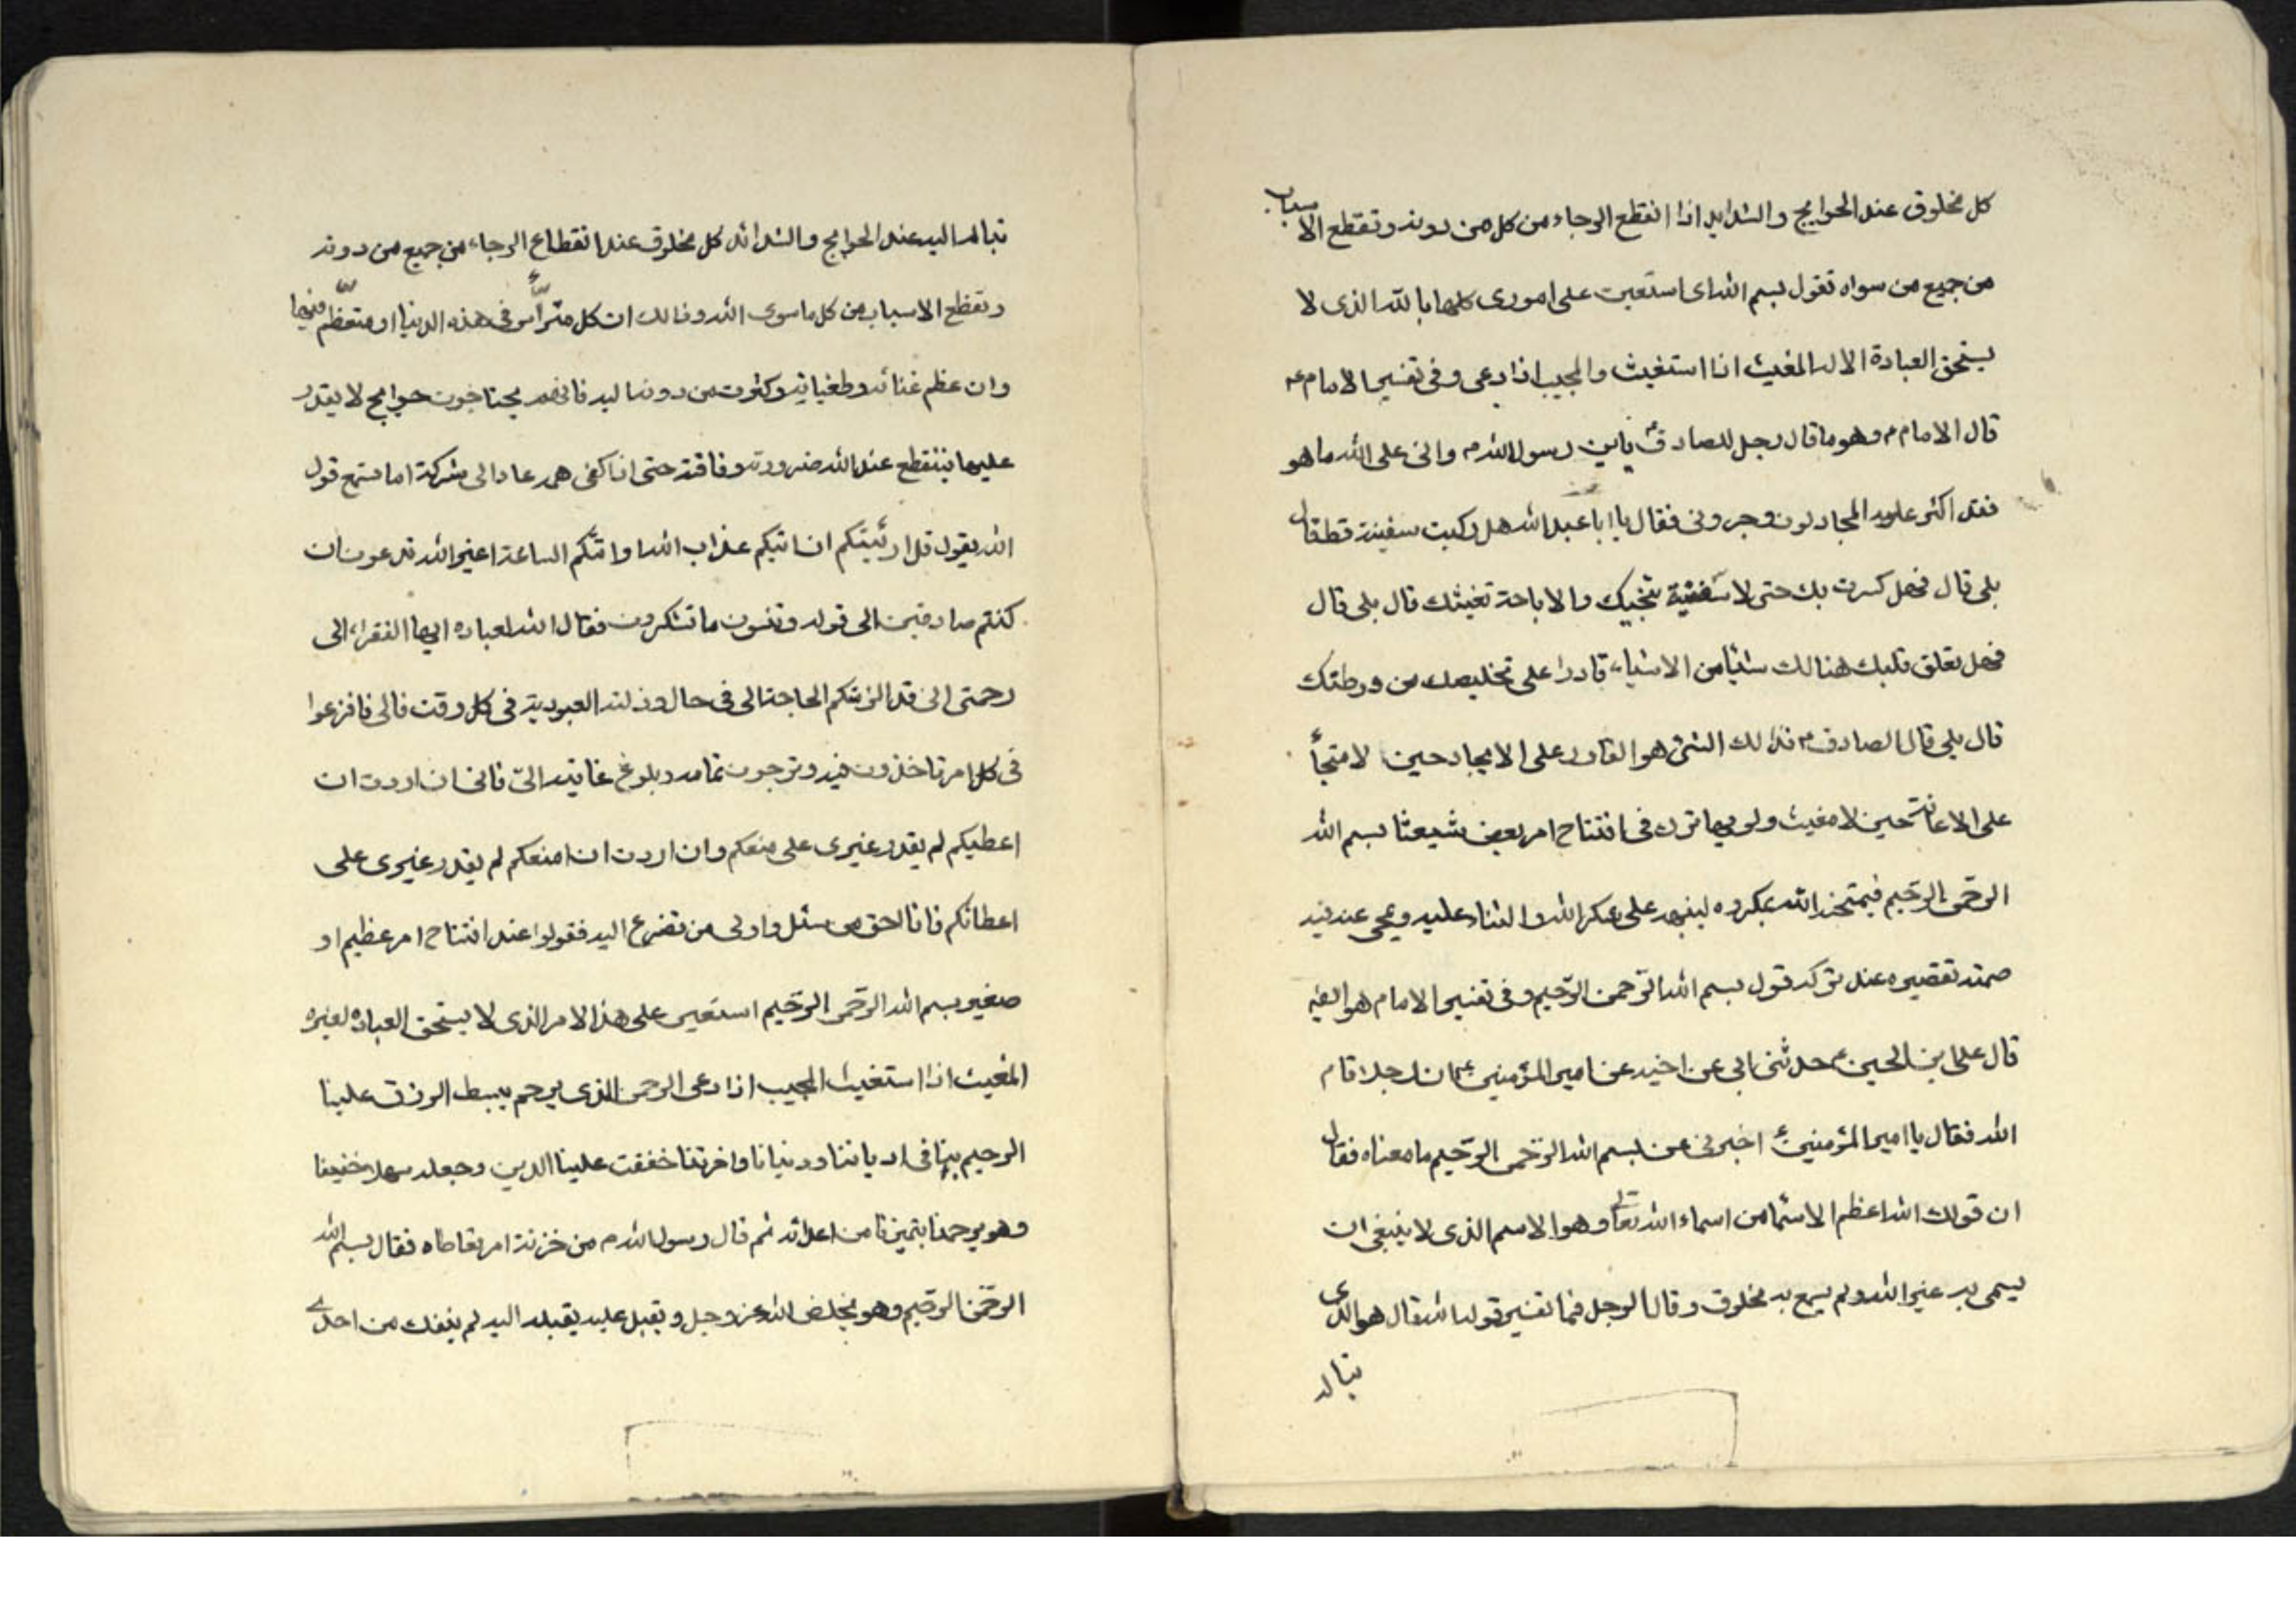 كل مخلوق عند الحوايج والشدايد اذا انقطع الرجاء من كل من دونه وتقطع الاسباب
من جميع من سواه تقول بسم الله ای استعين على اموری كلها بالله الذی لا
يستحق العبادة الا له المغيث اذا استغيث والمجيب اذا دعی وفی تفسير الامام ع
قال الامام ع وهو ما قال رجل للصادق ع يابن رسول الله م دلنی على الله ما هو
فقد اكثر على المجادلون وحيرونی فقال يا ابا عبد الله هل ركبت سفينة قط قال
بلى قال فهل كسرت بك حتى لا سفينة تنجيك ولا سباحة تغيثك قال بلى قال
فهل تعلق قلبك هنالك شئيا من الاشياء قادرا على تخليصك من ورطتك
قال بلى قال الصادق ع فذلك الشئ هو القادر على الانجاد حين لا منجأ
على الاغاثة حين لا مغيث ولربما ترك فی افتتاح امر بعض شيعتنا بسم الله
الرحمن الرحيم فيمتحنه الله بمكروه لينبهه على شكر الله والثناء عليه ويمحی عنه فيه
صمته تقصيره عند تركه قول بسم الله الرحمن الرحيم وفی تفسير الامام هو ايضا
قال على ابن الحسين ع حدثنی ابی عن اخيه عن امير المؤمنين ع ان رجلا قام
الله فقال يا امير المؤمنين ع اخبرنی عن بسم الله الرحمن الرحيم ما معناه فقال
ان قولك الله اعظم الاسما من اسماء الله تعالى وهو الاسم الذی لا ينبغی ان
يسمى به غير الله ولم يسم به مخلوق وقال الرجل فما تفسير قوله الله قال هو الذی
يتاله
يتاله اليه عند الحوايج والشدائد كل مخلوق عند انقطاع الرجاء من جميع من دونه
وتقطع الاسباب من كل ما سوی الله وذالك ان كل مترأس فی هذه الدنيا او متعظم فيها
وان عظم غنائه وطغيانه وكثرت من دونه اليه فانهم يحتاجون حوايج لا يقدر
عليها فينقطع عند الله ضرورته وفاقته حتى اذا كفى همه عاد الى شركه اما تسمع قول
الله يقول قل ارئيتكم ان اتيكم عذاب الله او اتتكم الساعة اغير الله تدعون ان
كنتم صادقين الى قوله وتنسون ما تشركون فقال الله لعباده ايها الفقراء الى
رحمتی انی قد الزمتكم الحاجة الی فی حال وذلة العبودية فی كل وقت فالی فافزعوا
فی كل امر تاخذون فيه وترجون تمامه وبلوغ غايته الیّ فانی ان اردت ان
اعطيكم لم يقدر غيری على منعكم وان اردت ان امنعكم لم يقدر غيری على
اعطائكم فانا احق من سئل واولى من تضرع اليه فقولوا عند افتتاح امر عظيم او
صغير بسم الله الرحمن الرحيم استعين على هذا الامر الذی لا يستحق العباده لغيره
المغيث اذا استغيث المجيب اذا دعى الرحمن الذی يرحم يبسط الرزق علينا
الرحيم بنا فی ادياننا ودنيانا واخرتنا خففت علينا الدين وجعله سهلا خفيفا
وهو يرحمنا بتميزنا من اعدائه ثم قال رسول الله م من حزنه امر تعاطاه فقال بسم الله
الرحمن الرحيم وهو يخلص لله عز وجل ويقبل عليه بقلبه اليه لم ينفك من احدی